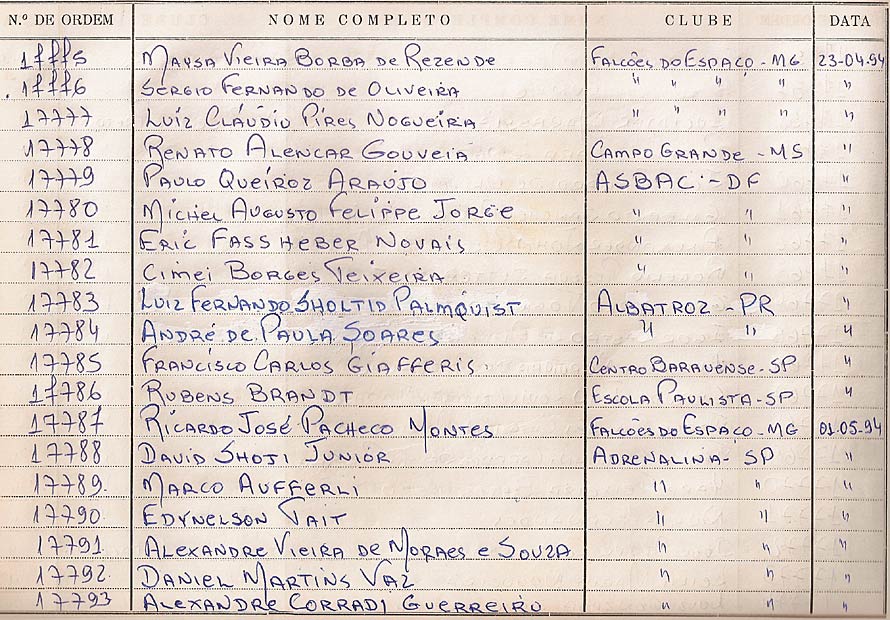 N.º DE ORDEM NOME COMPLETO CLUBE DATA
17775 Maysa Vieira Borba de Rezende Falcões do Espaço - MG 23-04.94
17776 Sergio Fernando de Oliveira " " " " "
17777 Luiz Cláudio Pires Nogueira " " " " "
17778 Renato Alencar Gouveia Campo Grande - MS "
17779 Paulo Queiroz Araújo ASBAC - DF "
17780 Michel Augusto Felippe Jorge " " "
17781 Eric Fassheber Novais " " "
17782 Cimei Borges Teixeira " " "
17783 Luiz Fernando Sholtid Palmquist Albatroz - PR "
17784 André de Paula Soares " " "
17785 Francisco Carlos Giafferis Centro Barauense - SP "
17786 Rubens Brandt Escola Paulista - SP "
17787 Ricardo José Pacheco Montes Falcões do Espaço - MG 01.05.94
17788 David Shoji Junior Adrenalina - SP "
17789. Marco Aufferli " " "
17790 Edynelson Tait " " "
17791 Alexandre Vieira de Moraes e Souza " " "
17792 Daniel Martins Vaz " " "
17793 Alexandre Corradi Guerreiro " " "